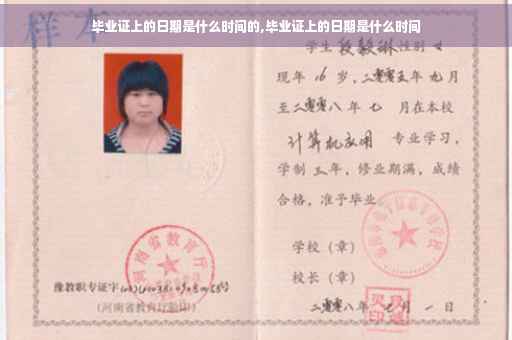 毕业证上的日期是什么时间的,毕业证上的日期是什么时间
样本
学生段毅琳性别女
现年16岁,二零零五年九月
至二零零八年七月在本校
计算机应用 专业学习,
学制三年,修业期满,成绩
合格,准予毕业
学校(章)
校长(章)
二零零八年七月一日
河南省教育厅
豫教职专证字
(河南省教育厅验印)